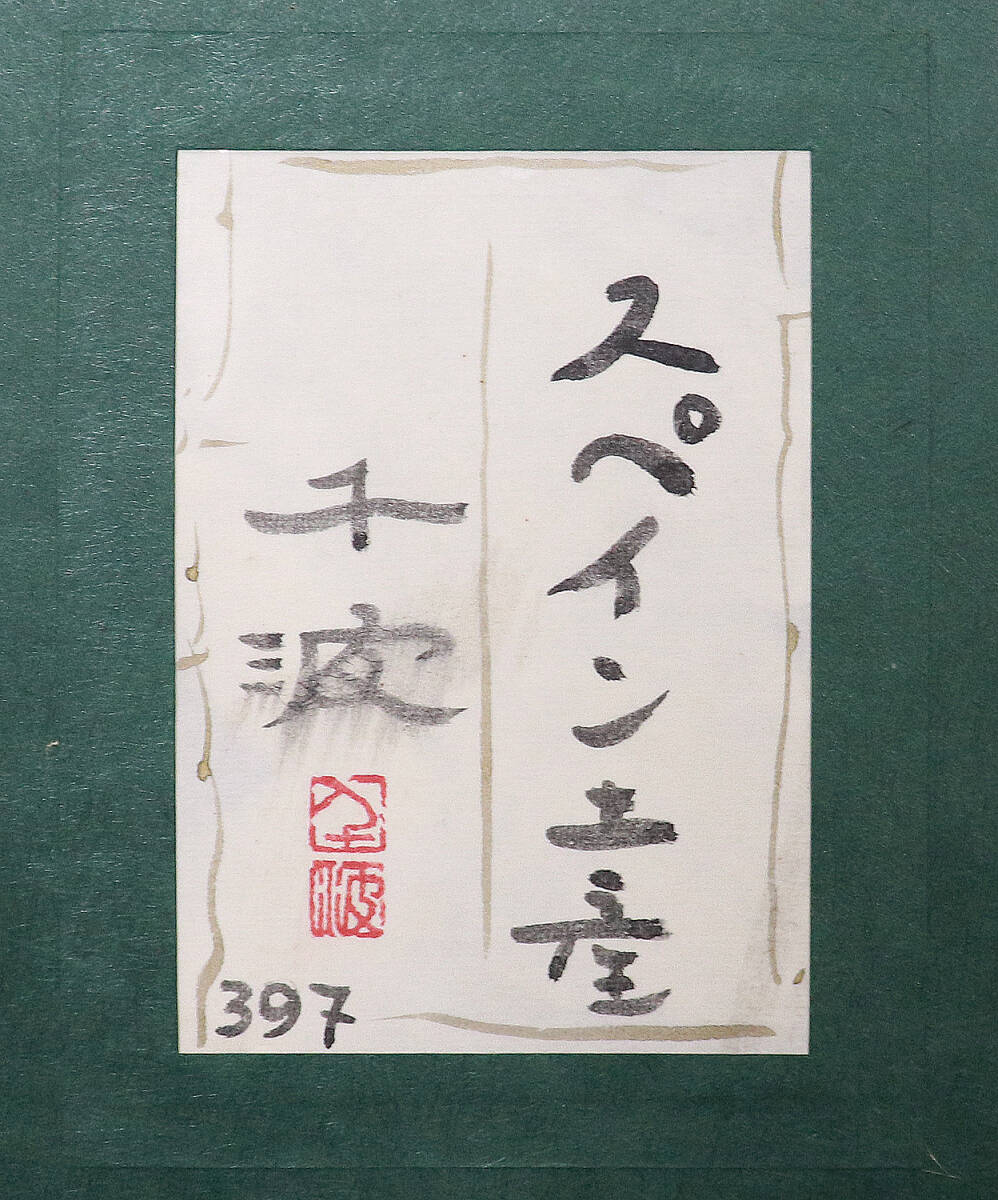 スペイン土産
千波
千波
397